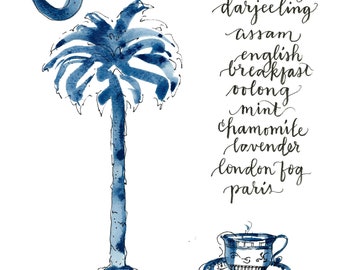 darjeeling
assam
english
breakfast
oolong
mint
chamomile
lavender
london fog
paris